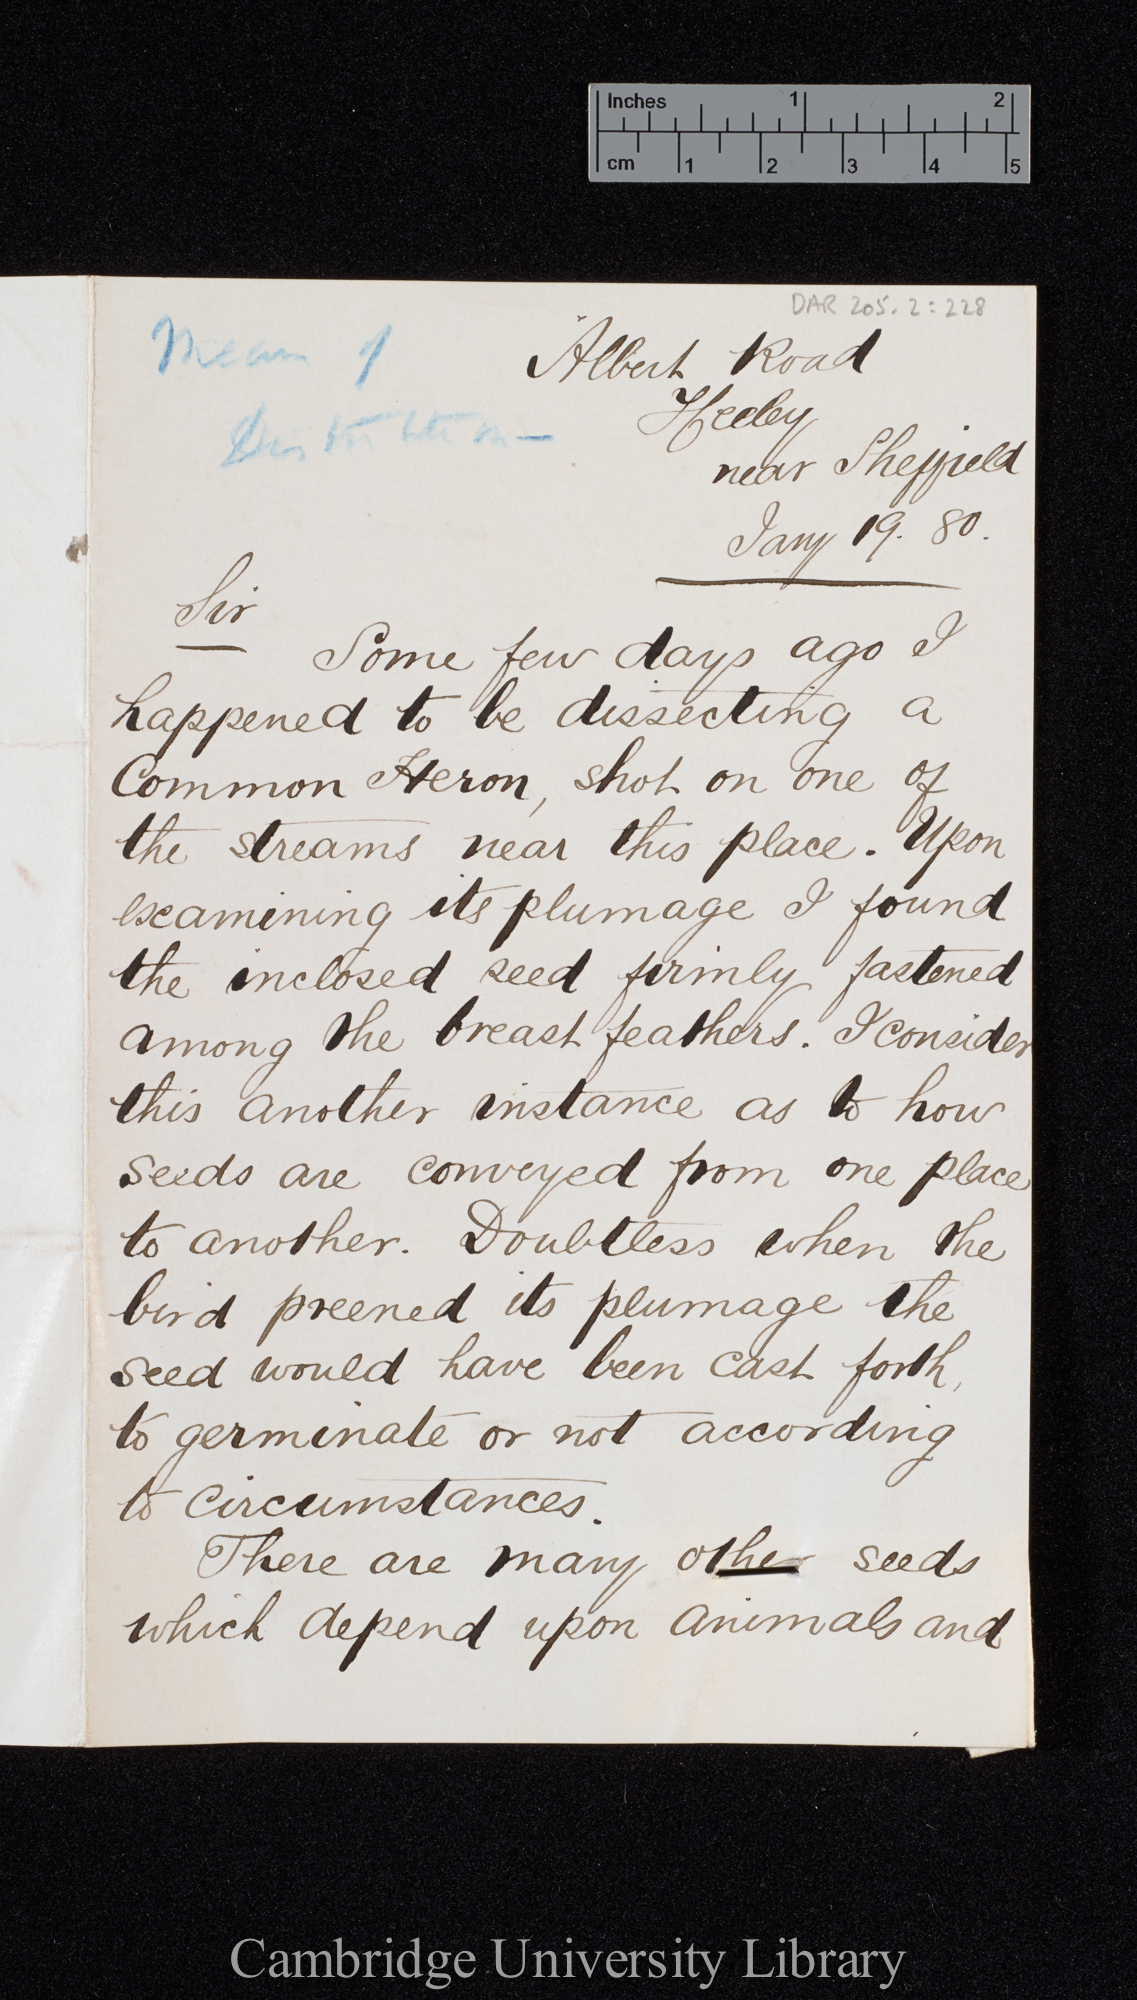 Inches 1 2
cm 1 2 3 4 5
DAR 205. 2: 228
Means of
Distribution—
Albert Road
Heeley
near Sheffield
Jany 19. 80.
Sir
Some few days ago I
happened to be dissecting a
Common Heron, shot on one of
the streams near this place. Upon
examining its plumage I found
the inclosed seed firmly fastened
among the breast feathers. I consider
this another instance as to how
seeds are conveyed from one place
to another. Doubtless when the
bird preened its plumage the
seed would have been cast forth,
to germinate or not according
to circumstances.
There are many other seeds
which depend upon animals and
Cambridge University Library